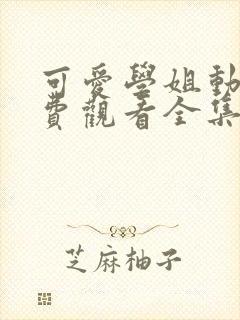 可愛學姐動
費觀看全集
芝麻柚子